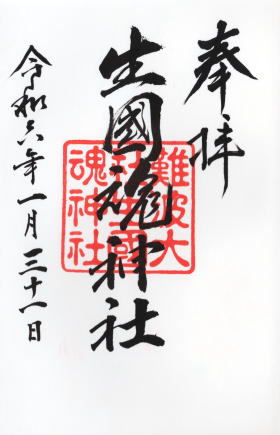 奉拝
生國魂神社
難波大
社生國
魂神社
令和六年一月三十一日